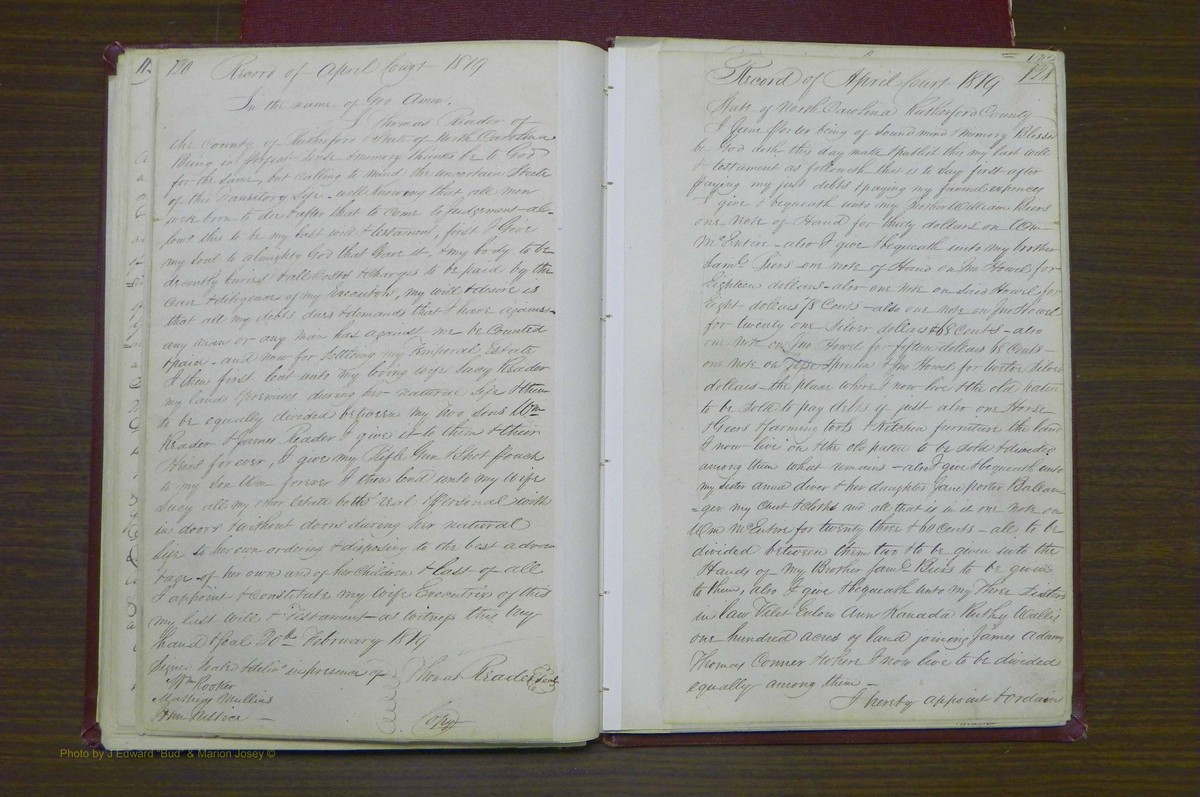 120 Record of April Court 1819
In the name of God Amen.
I Thomas Reader of
the County of Rutherford & State of North Carolina
Being in Perfect Sense & memory thanks be to God
for the same, but calling to mind the uncertain State
of this transitory Life & well knowing that all men
ware born to die & after that to come to Judgement - al-
lows this to be my last will & testament, first I Give
my Soul to almighty God that Gave it, & my body to be
decently buried & all Costs & charges to be paid by the
Care & diligence of my Executors, my will & desire is
that all my debts dues & demands that I have against
any man or any man has against me be Counted
& paid - and now for Settling my temporal Estate
I then first lent unto my loving wife Lucy Reader
my lands & premises during her natural life & then
to be equally divided between my two sons Wm
Reader & James Reader I give it to them & their
Heirs forever, I give my Rifle Gun & Shot pouch
to my son Wm forever I then lend unto my wife
Lucy all my other Estate both real & Personal with
in doors & without doors during her natural
life to her own ordering & disposing to the best advan
tage of her own and of her Children & last of all
I appoint & Constitute my wife Executrix of this
my last will & Testament - as witness this my
hand & Seal 20th February 1819
Signd Seald & delivd in presence of
Thomas Reader Seal
Wm Rooker
Mullins
Copy
121
Record of April Court 1819
State of North Carolina Rutherford County
I Jane Porter being of sound mind & memory Blessed
be God doth this day make & publish this my last will
& testament as followeth that is to say first after
paying my just debts & paying my funeral expences
I give & bequeath unto my Brother William Beers
one note of Hand for thirty dollars on Wm
McEntire - also I give & bequeath unto my brother
Saml Beers one note of Hand on Jno Howel for
Eighteen dollars - also one note on Said Howel for
Eight dollars 78 Cents - also one note on Jno Howel
for twenty one Silver dollars & 68 Cents - also
one note on Jno Howel for fifteen dollars 68 Cents -
one note on & Jno Howel for twelve Silver
dollars - the place where I now live & the old place
to be Sold to pay debts if just also one Horse
& Geers & farming tools & Kitchen furniture the land
I now live on & the old place to be Sold & divided
among them what remains - also I give & bequeath unto
my Sister anna & her daughter Jane porter Ballen
-ger my Chest & Cloths and all that is in it one note on
Wm McEntire for twenty three & 60 Cents - all to be
divided between them two & to be given into the
Hands of my Brother Saml Beers to be given
to them, also I give & bequeath unto my Three Sisters
in law Enlow Ann Kanada Ruthy Wallis
one hundred acres of land joining James Adams
Thomas Conner & where I now live to be divided
equally among them -
I hereby appoint & ordain
Photo by J Edward "Bud" & Marion Josey ©